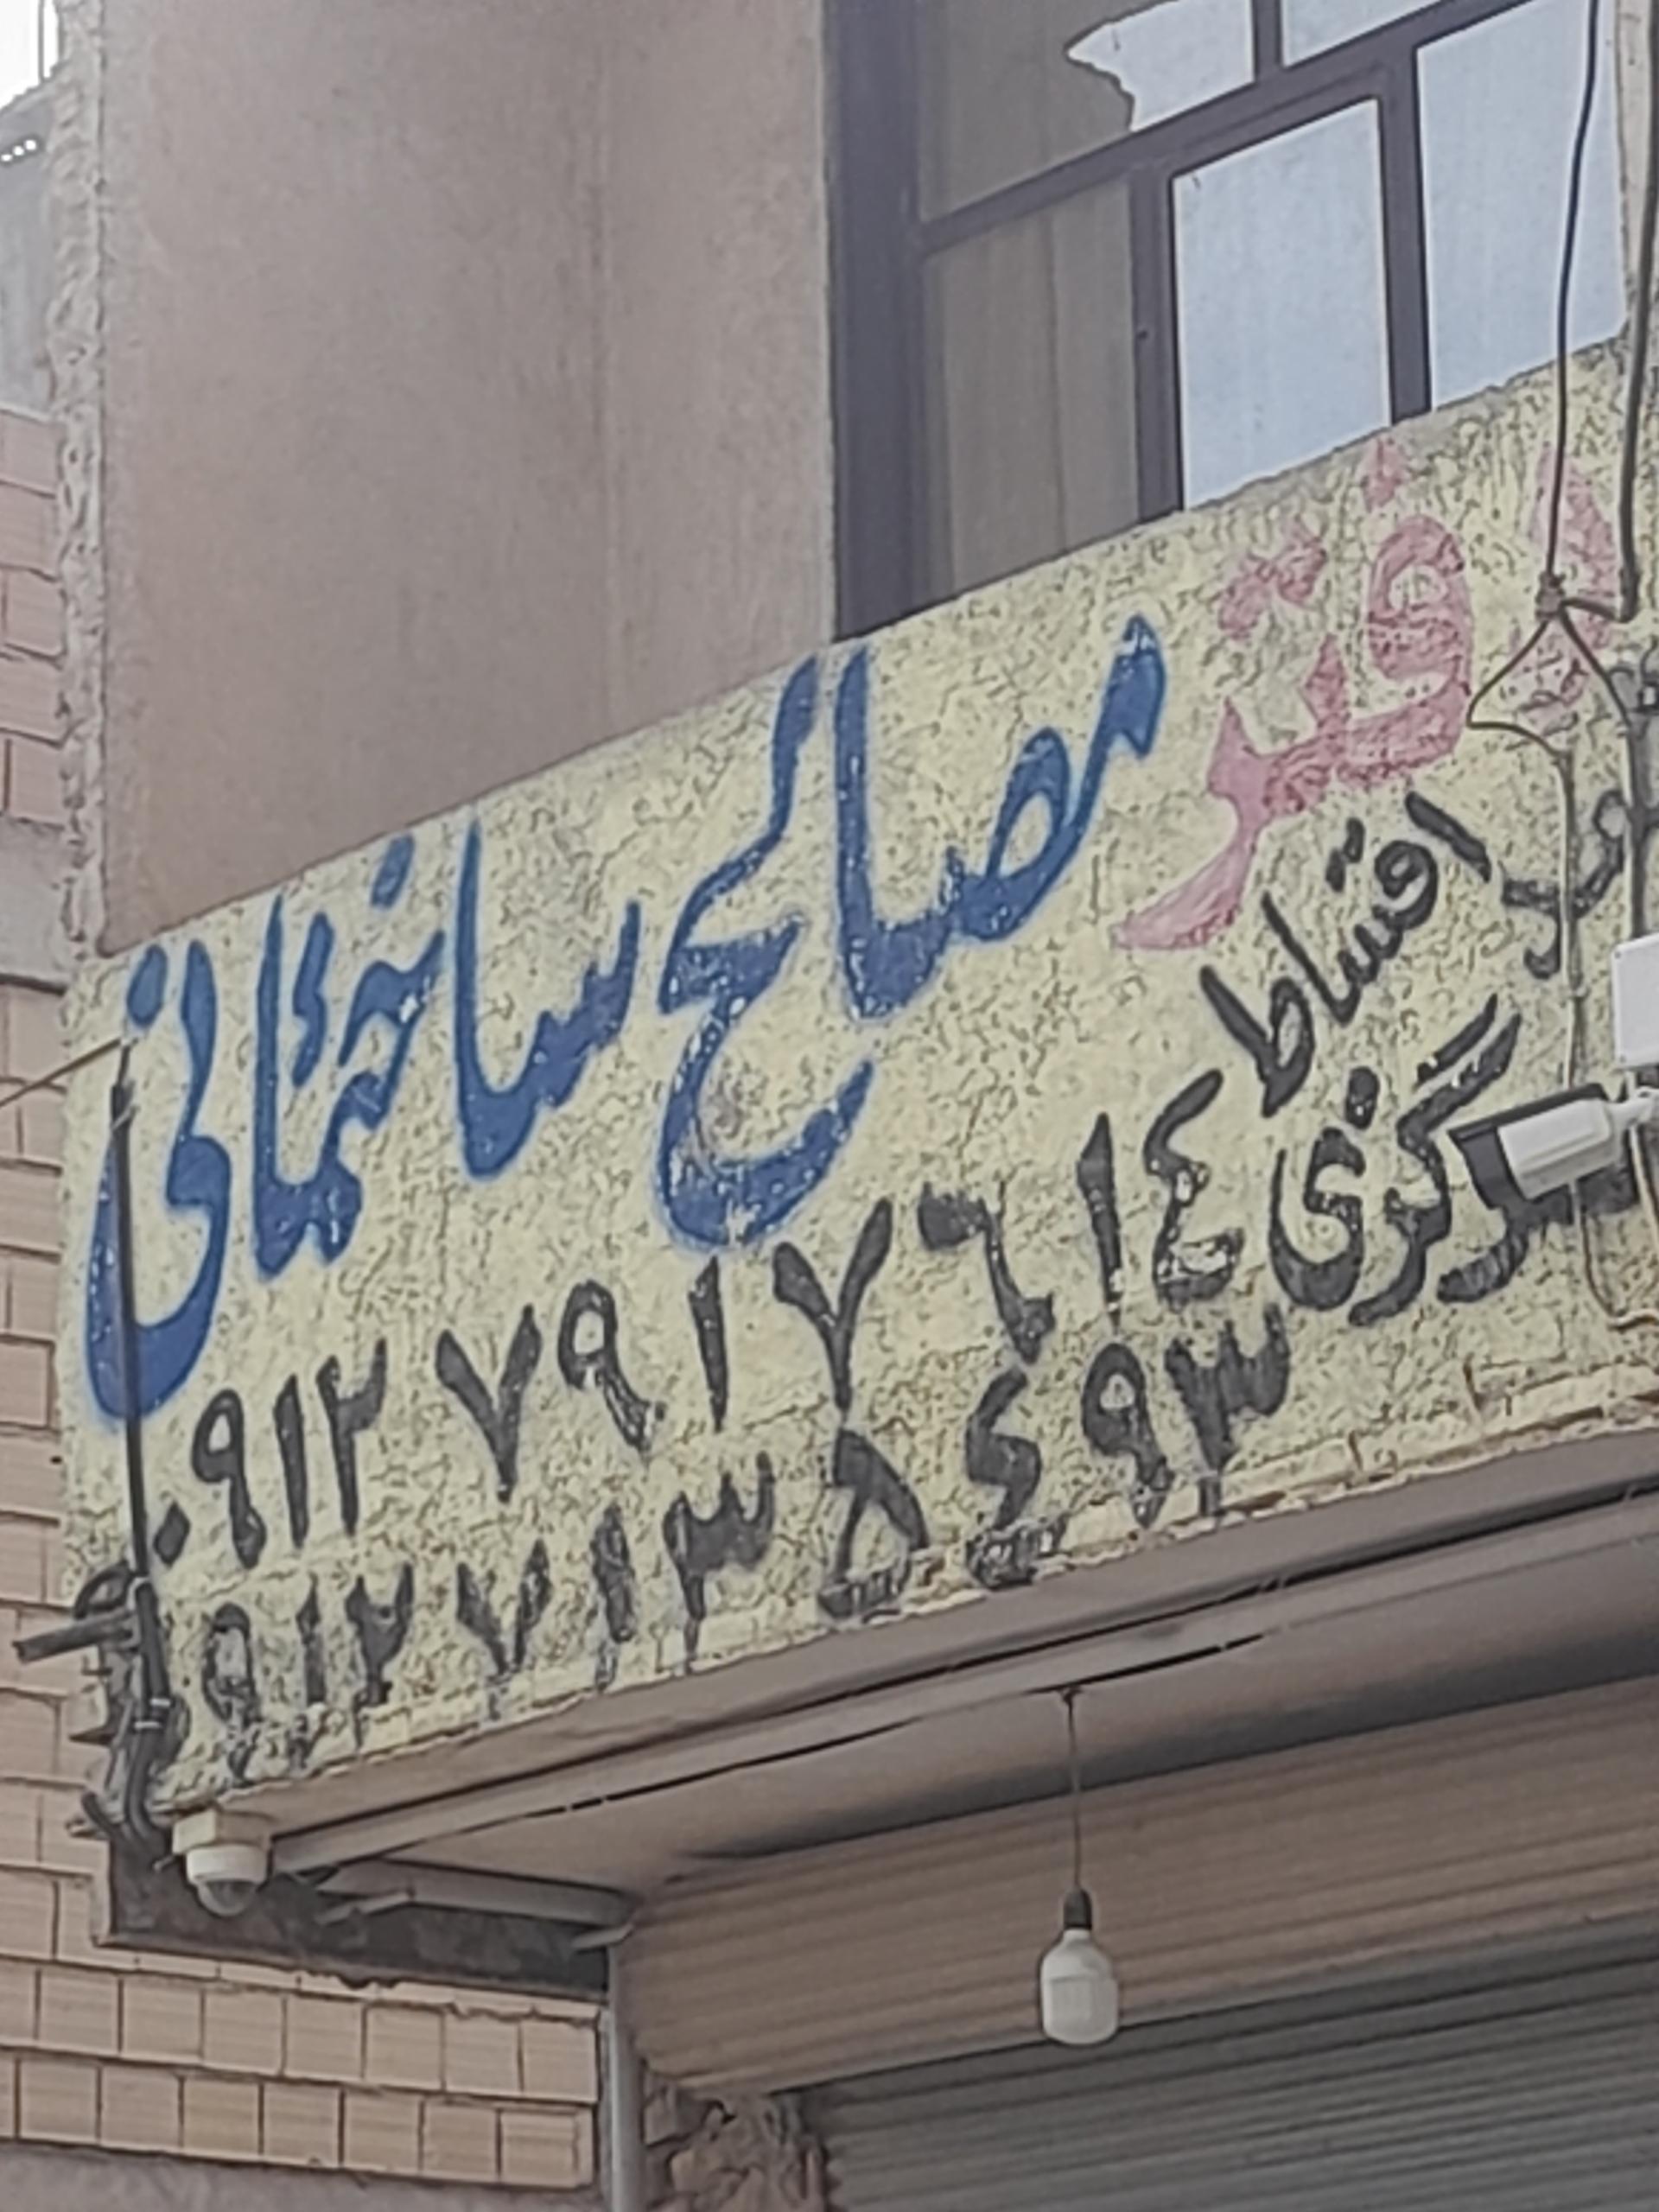 دفتر مصالح ساختمانی
اقساط
۰۹۱۲ ۷۹۱ ۷۶ ۱۴
۹۱۲۷۱۳۵۴۹۳